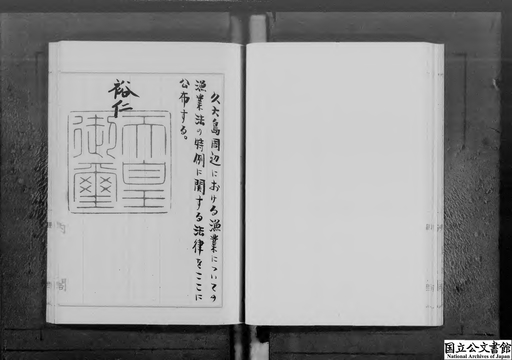 久六島周辺における漁業についての
漁業法の特例に関する法律をここに
公布する。
裕仁
天皇
御璽
国立公文書館
National Archives of Japan